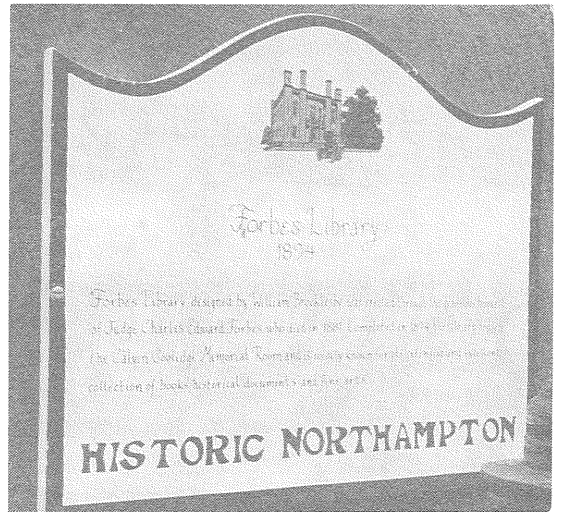 Forbes Library
1894
Forbes Library designed by William
of Judge Charles Edward Forbes who died in 1881. Completed in 1894
the Calvin Coolidge Memorial Room and is
collection of books historical documents and fine arts
HISTORIC NORTHAMPTON